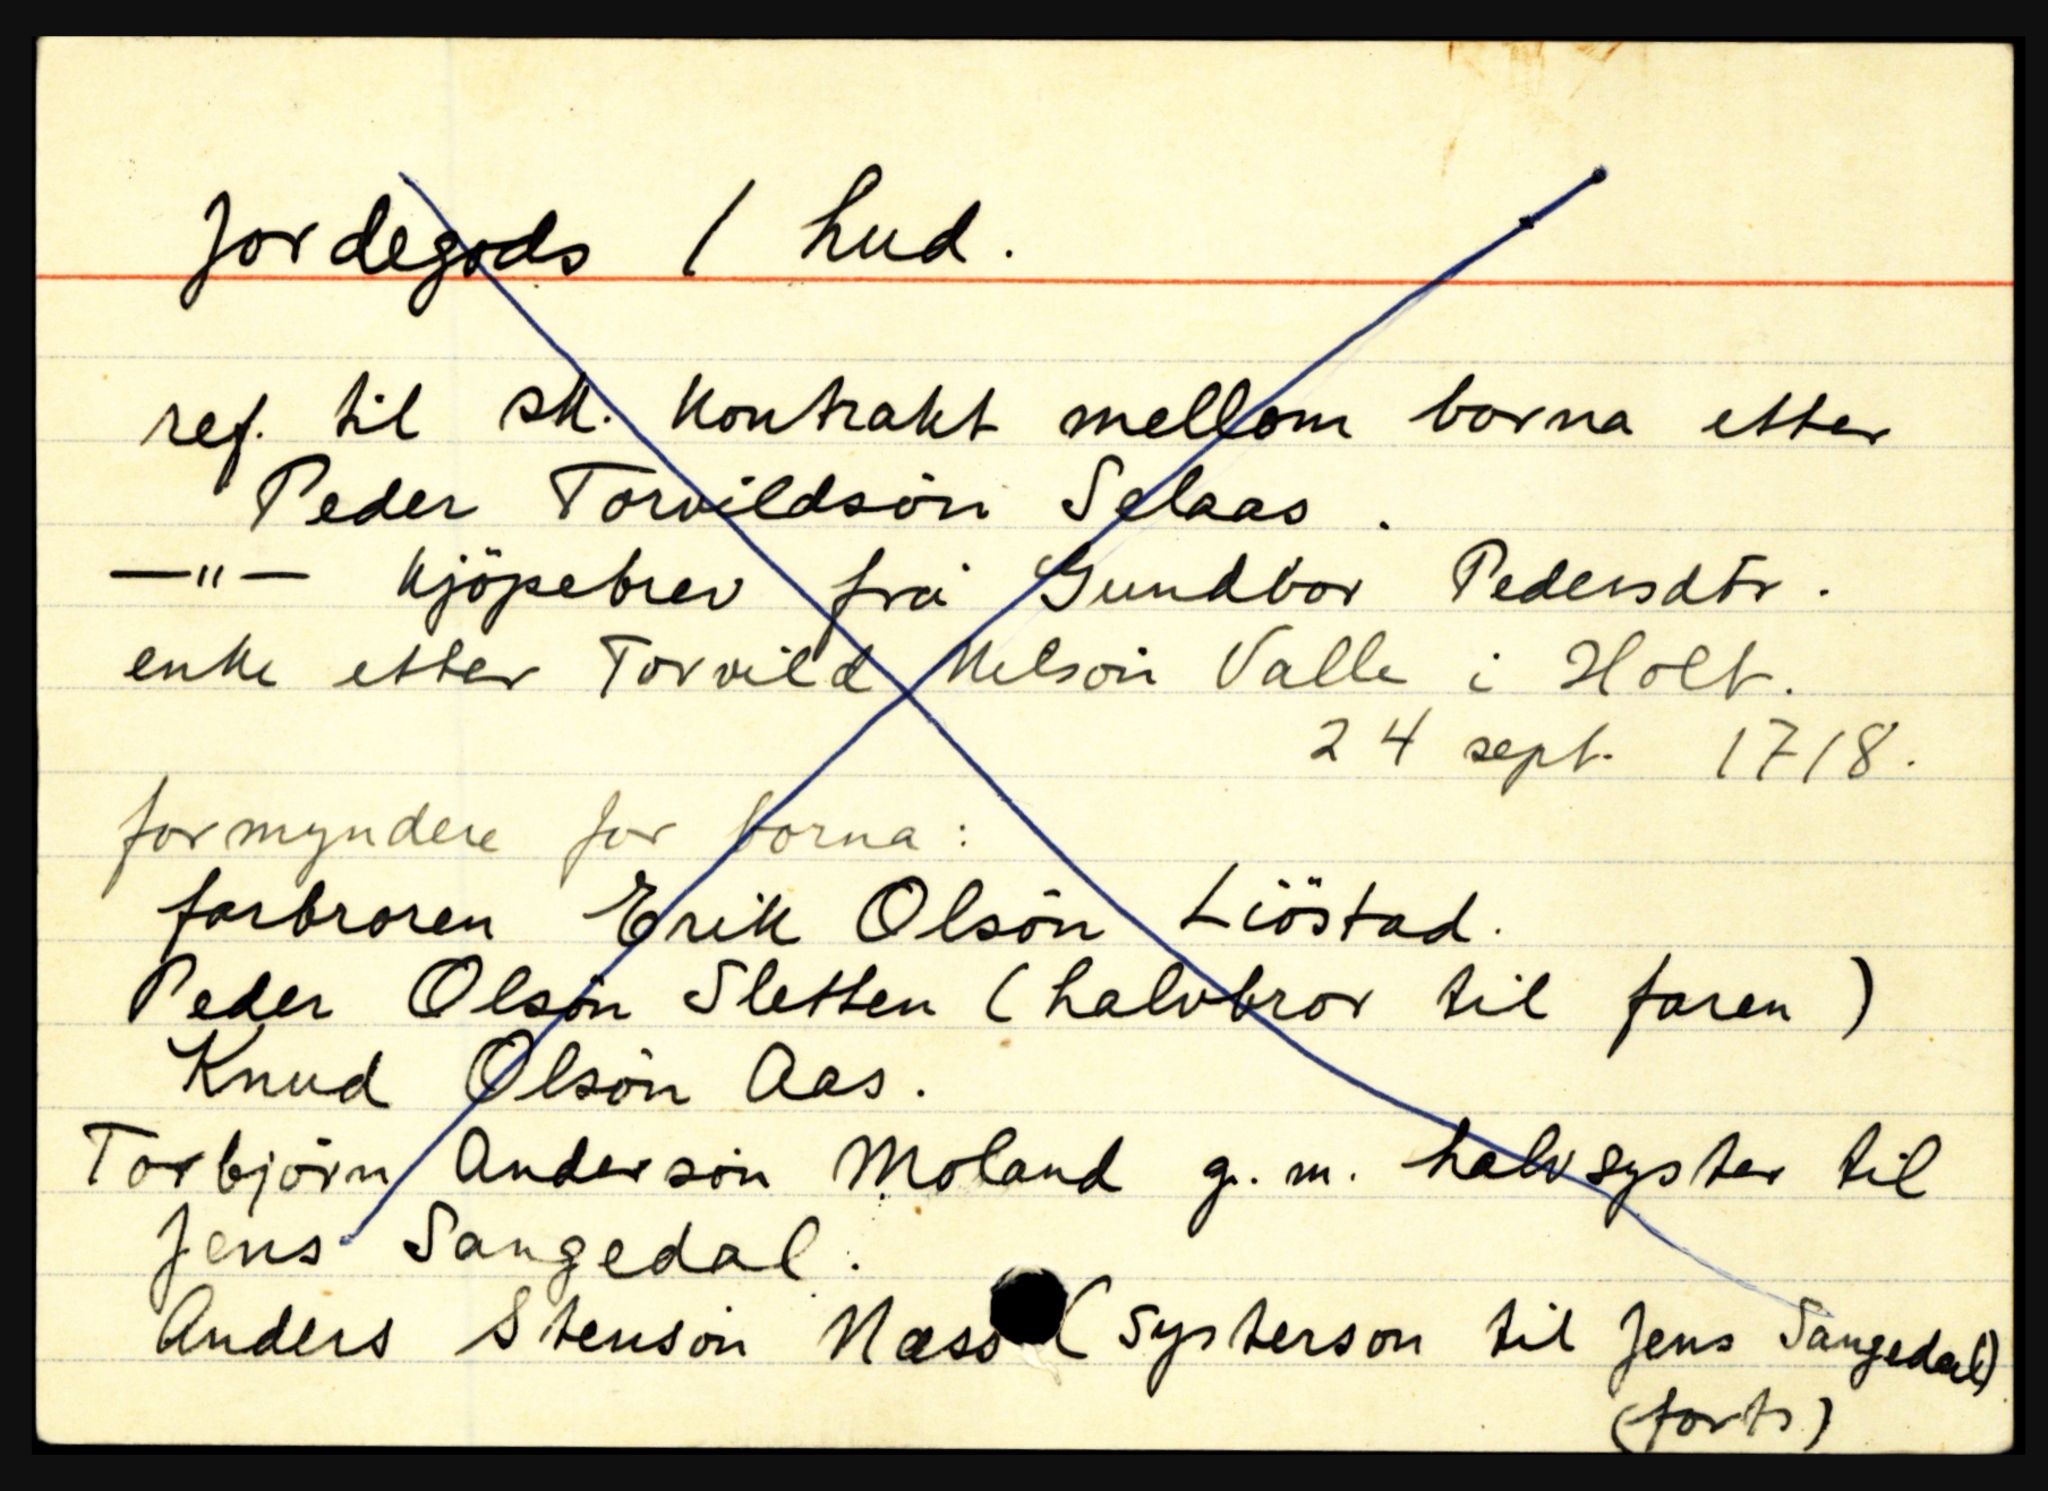 Jordegods 1 hud.
ref. til sk. kontrakt mellom borna etter
Peder Torvildsön Selaas.
—"— kjöpebrev frå Gundbor Pedersdtr.
enke etter Torvild Nelsön Valle i Holt.
24 sept. 1718.
formyndere for borna:
farbroren Erik Olsön Liöstad.
Peder Olsön Sletten (halvbror til faren)
Knud Olsön Aas.
Torbjörn Andersön Moland g. m. halvsyster til
Jens Sangedal.
Anders Stensön Næss (systerson til Jens Sangedal)
(forts)